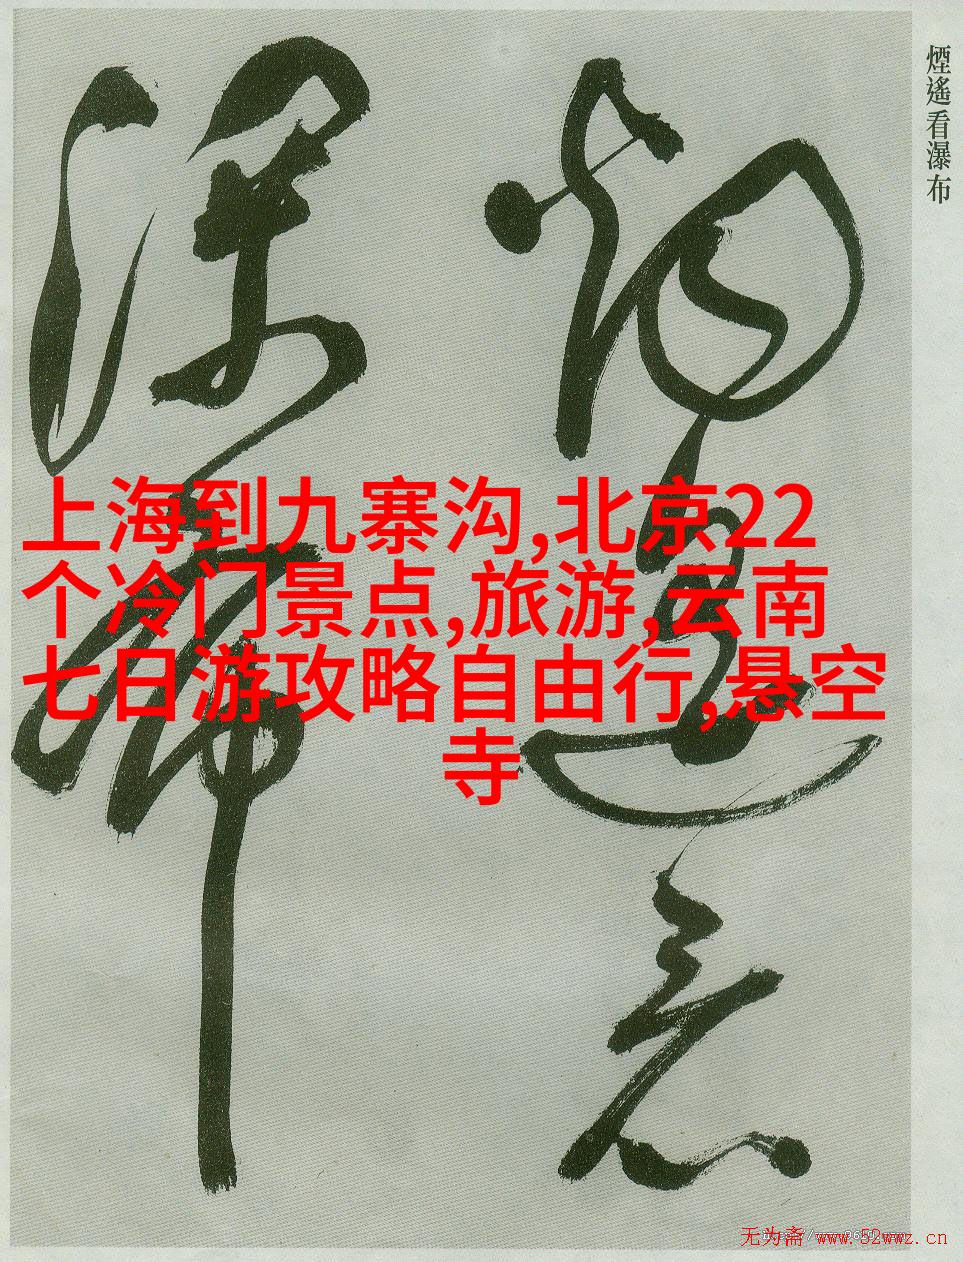 煙遙看瀑布
煙遙看
瀑布
上海到九寨沟,北京22
个冷门景点,旅游,云南
七日游攻略自由行,悬空
寺
无为斋 www.52wwz.cn